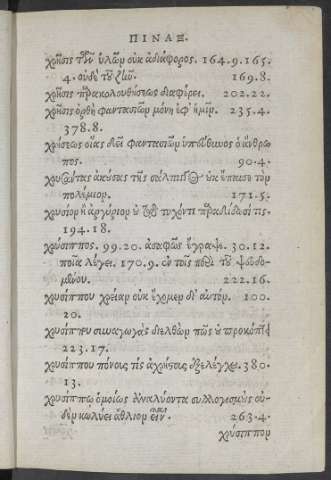 ΠΙΝΑΞ.
χρῆσις τῶν ὑλῶν οὐκ ἀδιάφορος. 164.9. 165.
4. οὐδὲ τοῦ ζῆν. 169.8.
χρῆσις παρακολουθήσεως διαφέρει. 202.22.
χρῆσις ὀρθὴ φαντασιῶν μόνη ἐφ' ἡμῖν. 235.4.
378.8.
χρήσεως οἵας δεῖ φαντασιῶν ὑπεύθυνος ὁ ἄνθρω
πος. 90.4.
ἀκούσας τῆς σάλπιγγος οὐκ τὸν
πολέμιον. 171.5.
χρυσίον ἢ ἀργύριον οὐ τῷ τυχόντι παραδίδωσί τις.
194.18.
χρύσιππος. 99.20. ἀσαφῶς ἔγραψε. 30.12.
ποῖα λέγει. 170.9. ἐν τοῖς περὶ τοῦ ψευδο-
μένου. 222.16.
χρυσίππου χρείαν οὐκ ἔχομεν δι' αὐτόν. 100.
20.
χρυσίππου συναγωγὰς διελθὼν πῶς ὁ προκόπτων
223.17.
χρυσίππου πόνους τίς ἀχρήστους ἐξελέγχει. 380.
13.
χρυσίππῳ ὁμοίως ἀναλύοντα συλλογισμοὺς οὐ-
δὲν κωλύει ἄθλιον εἶναι. 263.4.
χρύσιππον